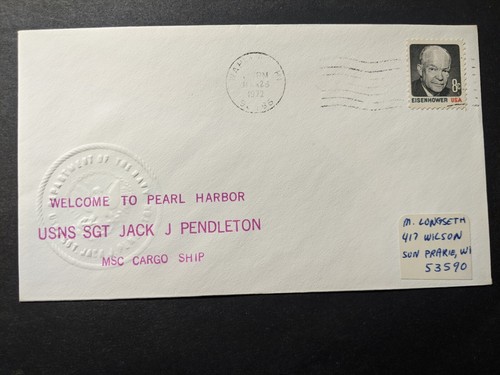 1972
8c
EISENHOWER USA
DEPARTMENT OF THE
WELCOME TO PEARL HARBOR
USNS SGT JACK J PENDLETON
MSC CARGO SHIP
M. LONGSETH
417 WILSON
SUN PRARIE, WI
53590